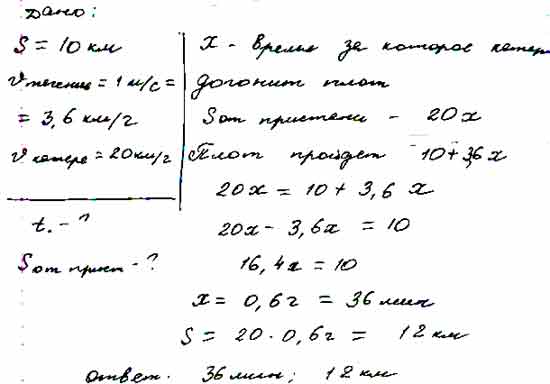 Дано:
S = 10 км
v течения = 1 м/с =
= 3,6 км/г
v катера = 20 км/г
t. - ?
S от прист - ?
x - время за которое катер
догонит плот
S от пристани - 20x
Плот пройдет 10 + 3,6 x
20x = 10 + 3,6 x
20x - 3,6x = 10
16,4x = 10
x = 0,6 г = 36 мин
S = 20 · 0,6 г = 12 км
ответ. 36 мин; 12 км